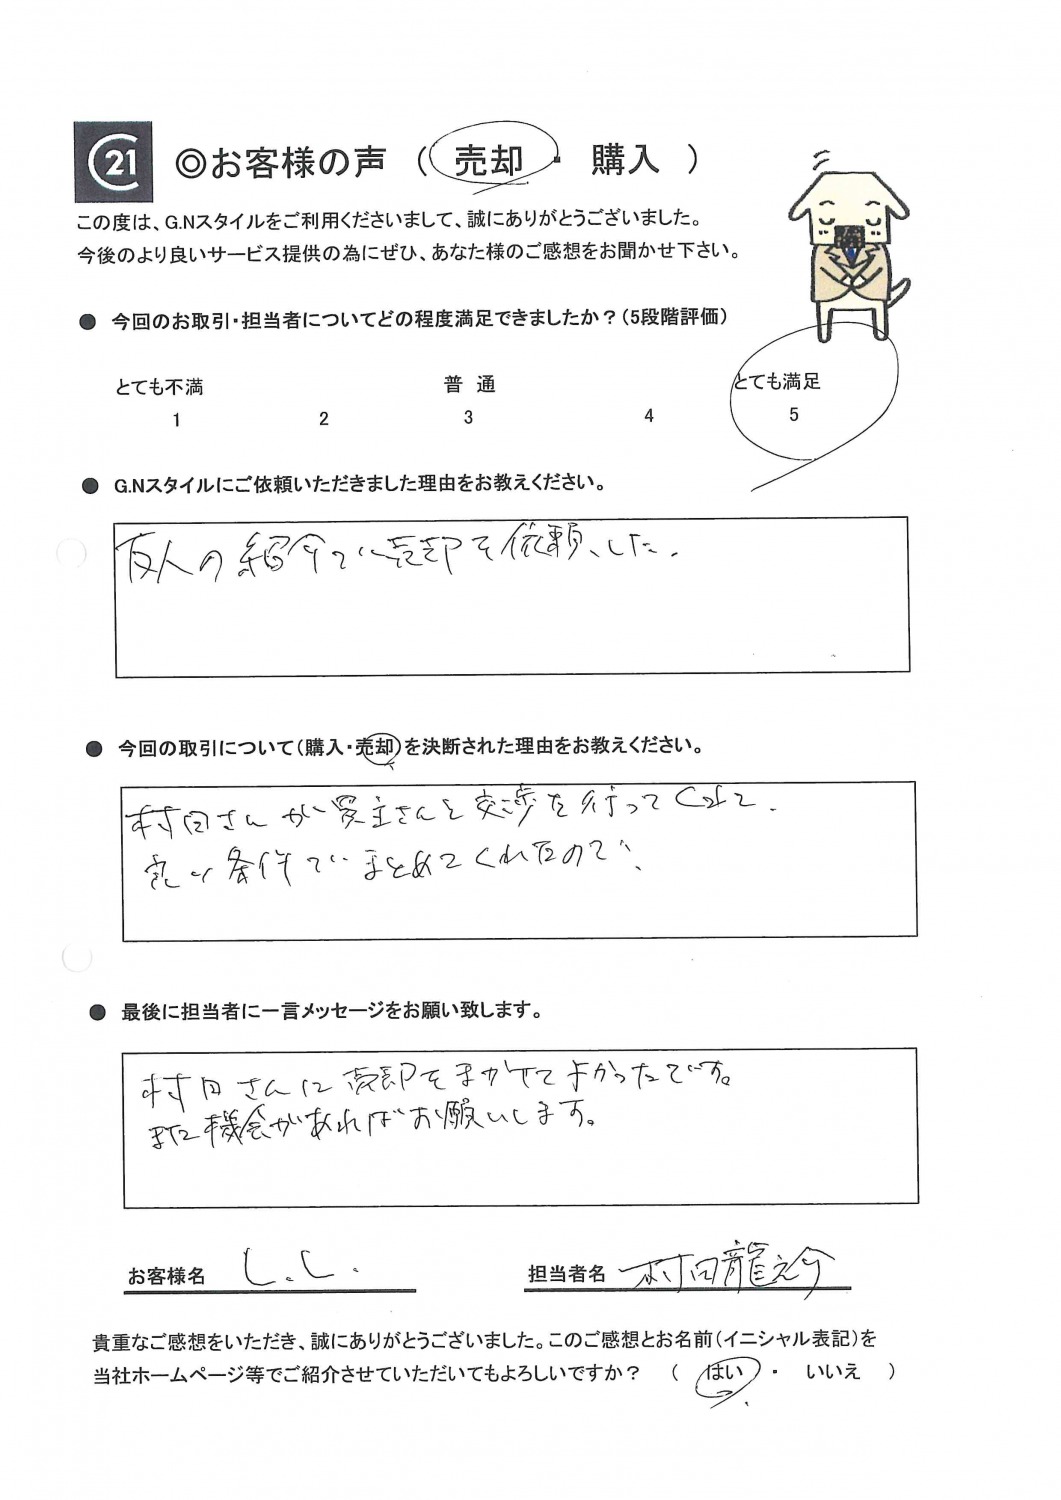 C21 ◎お客様の声 ( 売却 ・ 購入 )
この度は、G.Nスタイルをご利用くださいまして、誠にありがとうございました。
今後のより良いサービス提供の為にぜひ、あなた様のご感想をお聞かせ下さい。
● 今回のお取引・担当者についてどの程度満足できましたか？(5段階評価)
とても不満 普 通 とても満足
1 2 3 4 5
● G.Nスタイルにご依頼いただきました理由をお教えください。
友人の紹介で売却を依頼した。
● 今回の取引について(購入・売却)を決断された理由をお教えください。
村田さんが買主さんと交渉を行ってくれて、
良い条件でまとめてくれたので、
● 最後に担当者に一言メッセージをお願い致します。
村田さんに売却をまかせてよかったです。
また機会があればお願いします。
お客様名 L.L. 担当者名 村田龍之介
貴重なご感想をいただき、誠にありがとうございました。このご感想とお名前(イニシャル表記)を
当社ホームページ等でご紹介させていただいてもよろしいですか？ ( はい ・ いいえ )